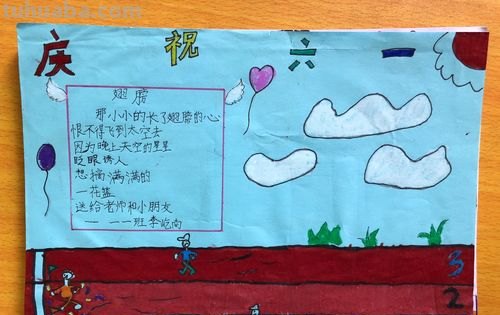 tuhuaba.com
庆祝六一
翅膀
那小小的长了翅膀的心
恨不得飞到太空去
因为晚上天空的星星
眨眼诱人
想摘满满的
一花篮
送给老师和小朋友
—— 一一班李屹向
3
2